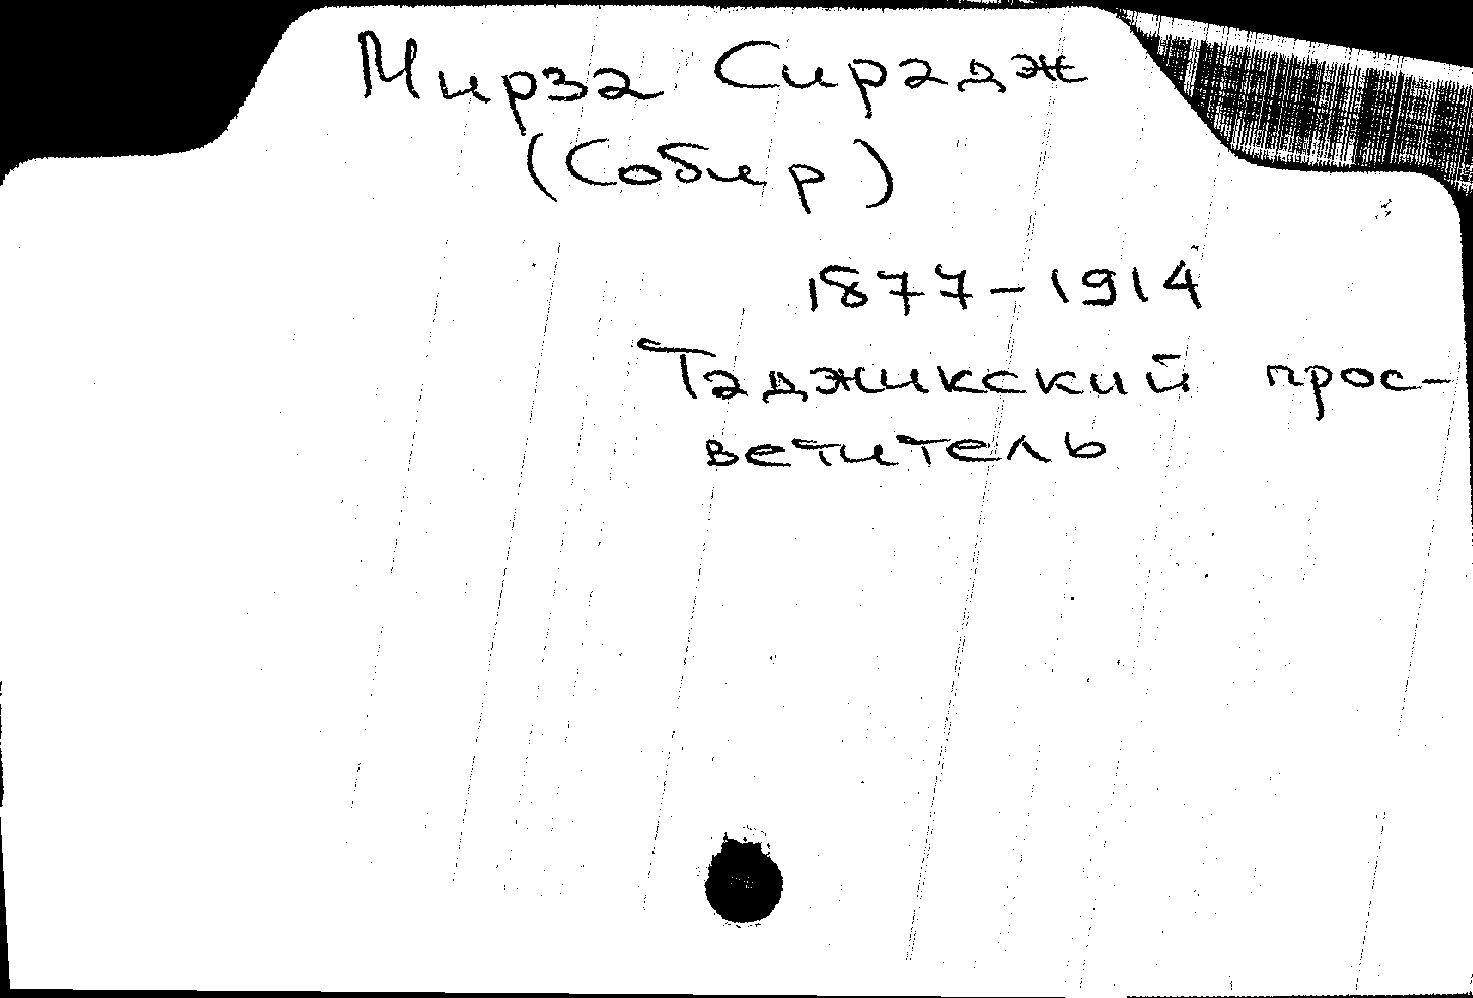 Мирза Сирадж
(Собир)
1877-1914
Таджикский прос-
ветитель